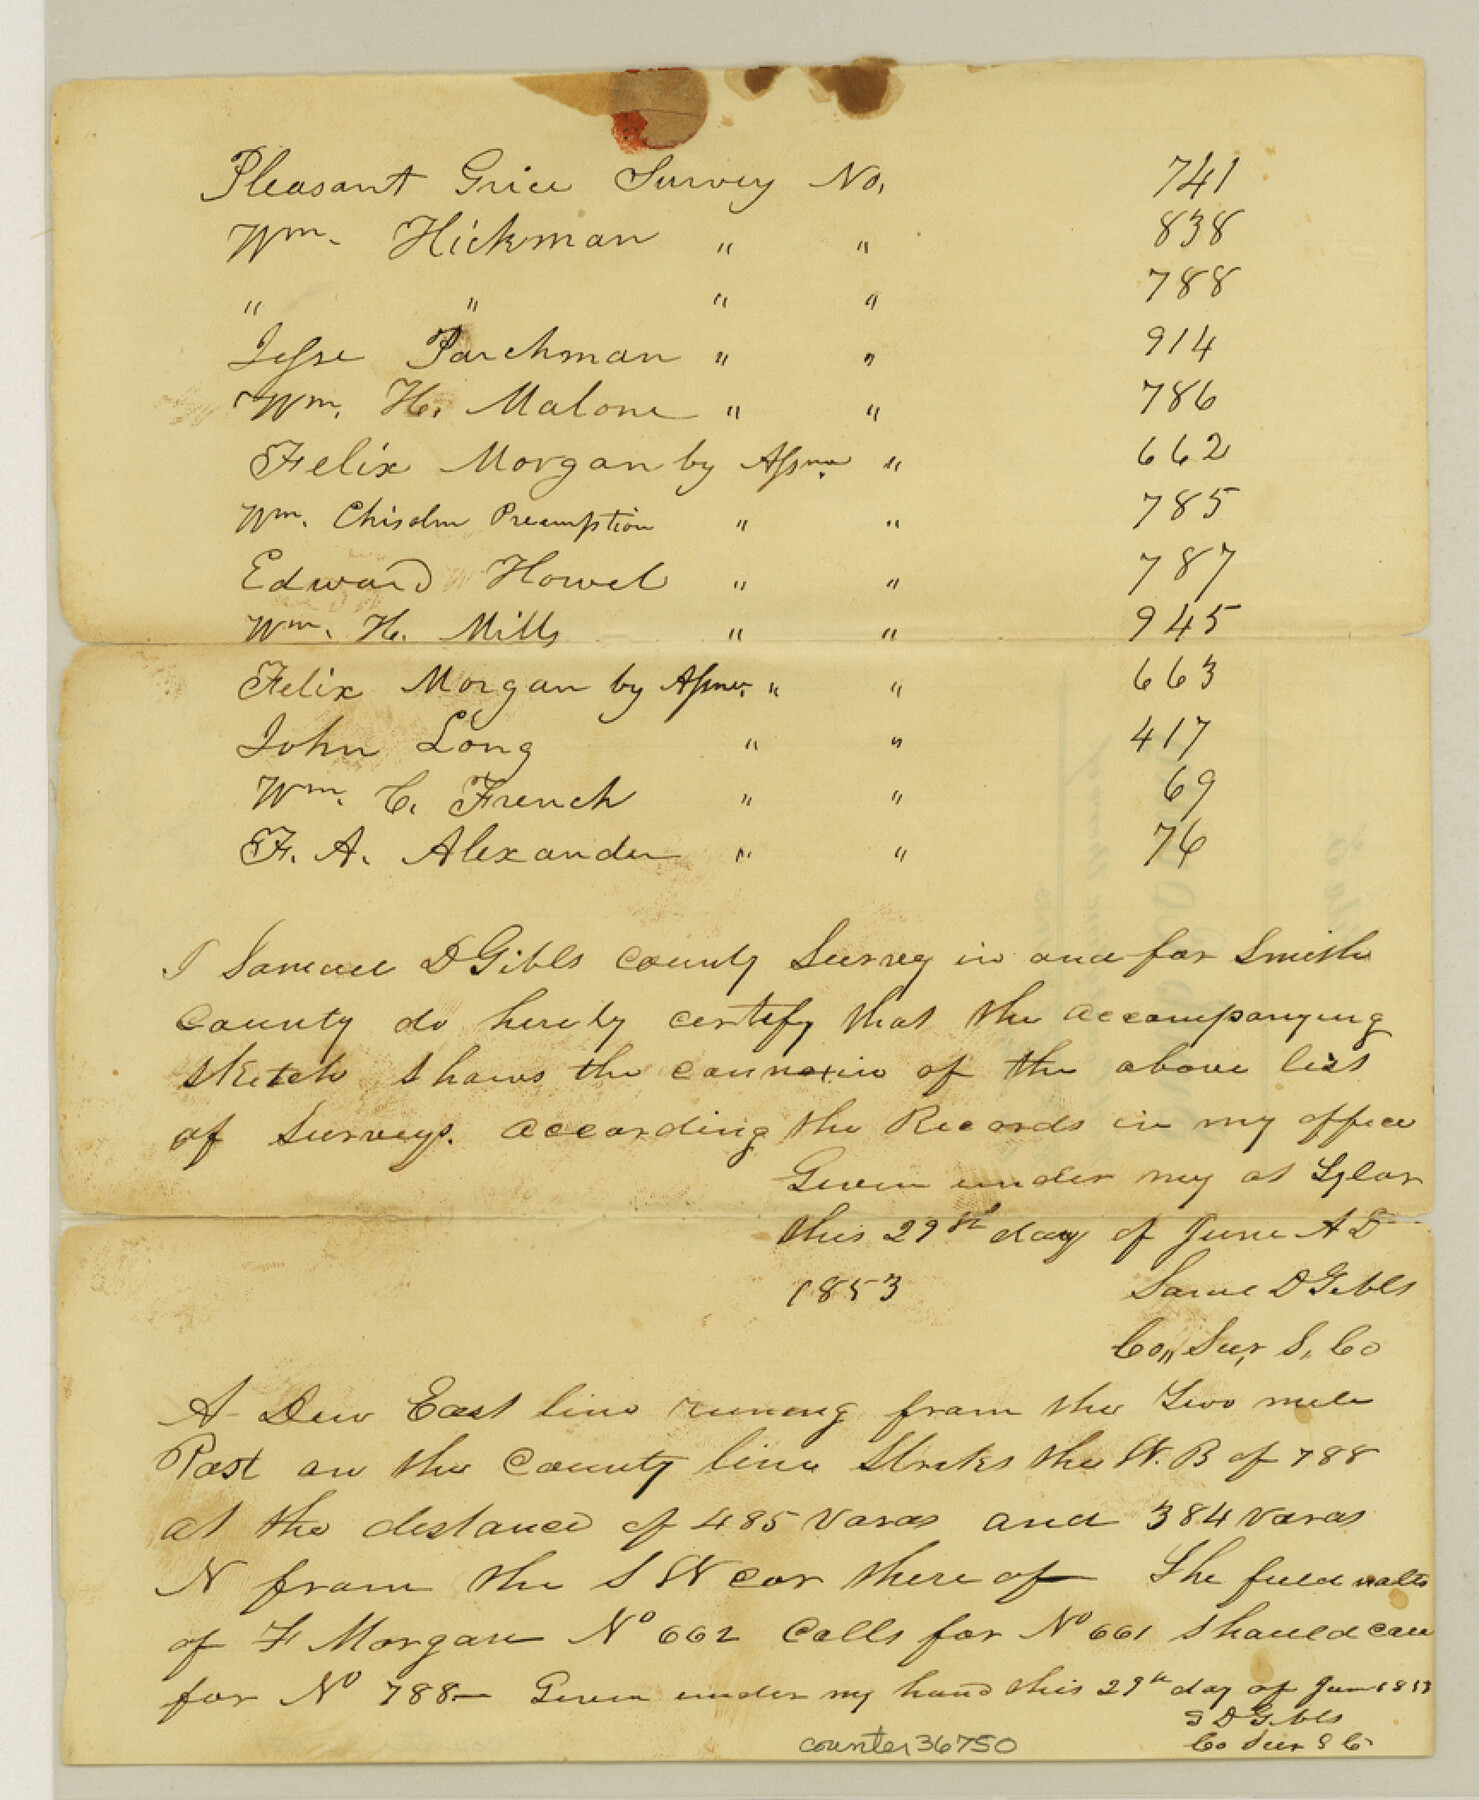 Pleasant Grice Survey No. 741
Wm. Hickman " " 838
" " " " 788
Jesse Parchman " " 914
Wm. H. Malone " " 786
Felix Morgan by Assne. " 662
Wm. Chisolm Preemption " " 785
Edward Howel " " 787
Wm. H. Mills " " 945
Felix Morgan by Assne. " " 663
John Long " " 417
Wm. C. French " " 69
F. A. Alexander " " 76
I Samuel D Gibbs County Survey in and for Smith
County do hereby certify that the accompanying
sketch shows the connexin of the above list
of Surveys. according the Records in my office
Given under my at Tyler
this 29th day of June A D
1853 Saml D Gibbs
Co,, Sur, S, Co
A Due East line runing from the Two mile
Post on the County line Strks the W. B of 788
at the distance of 485 varas and 384 varas
N from the S W cor there of The field notes
of F Morgan No 662 Calls for No 661 should call
for No 788— Given under my hand this 29th day of June 1853
S D Gibbs
Co Sur S Co
counter 36750